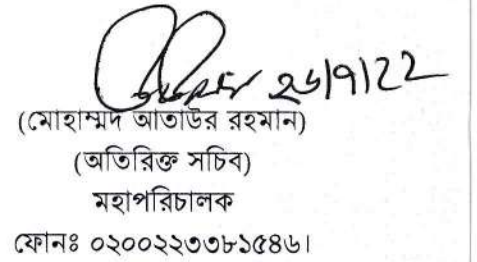 ২৬/৭/২২
(মোহাম্মদ আতাউর রহমান)
(অতিরিক্ত সচিব)
মহাপরিচালক
ফোনঃ ০২০০২২৩৩৮১৫৪৬।